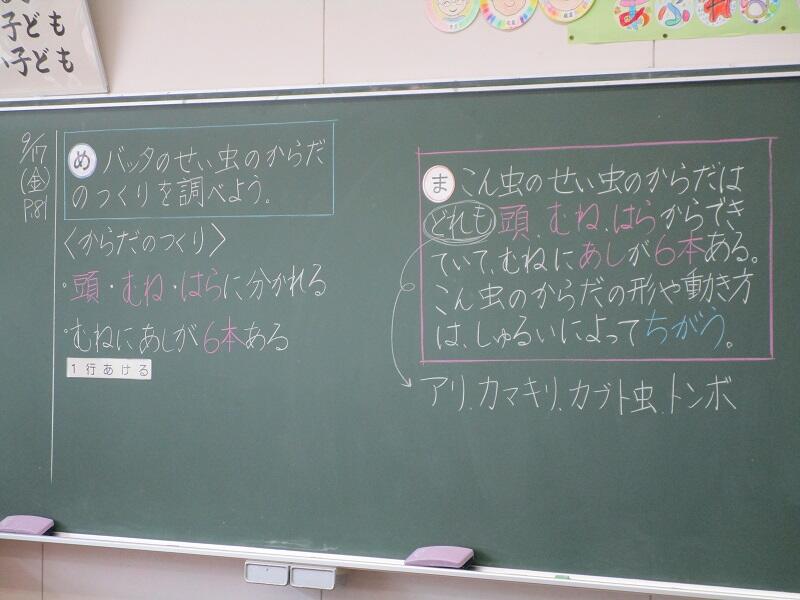 子ども
い子ども
あふれる
9/17
(金)
P.81
め バッタのせい虫のからだ
のつくりを調べよう。
〈からだのつくり〉
・頭・むね・はらに分かれる
・むねにあしが6本ある
1行あける
ま こん虫のせい虫のからだは
どれも頭、むね、はらからでき
ていて、むねにあしが6本ある。
こん虫のからだの形や動き方
は、しゅるいによってちがう。
アリ、カマキリ、カブト虫、トンボ